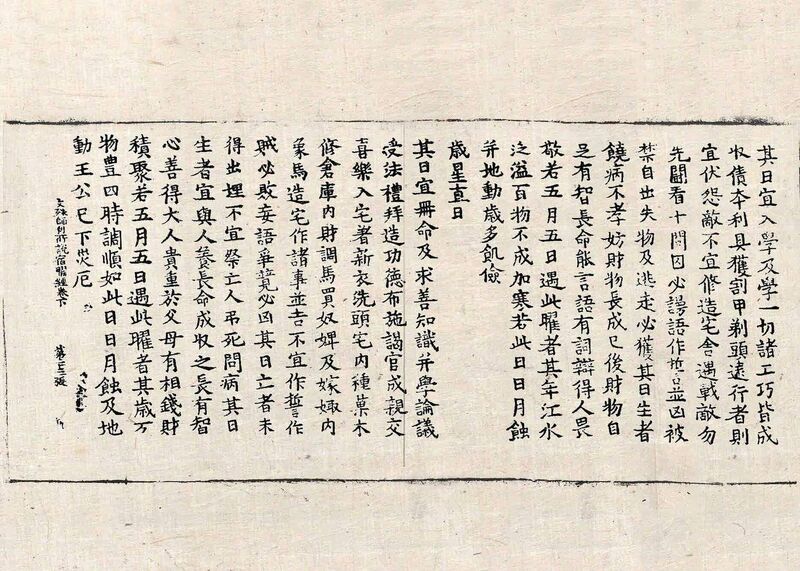 其日宜入學及學一切諸工巧皆成
收債夲利具獲割甲剃頭遠行者則
宜伏怨敵不宜修造宅舍遇戰敵勿
先鬪看十問囚必謾語作誓並凶被
禁自出失物及逃走必獲其日生者
饒病不孝妨財物長成已後財物自
足有智長命能言語有詞辯得人畏
敬若五月五日遇此曜者其年江水
泛溢百物不成加寒若此日日月蝕
并地動歲多飢儉
歲星直日
其日宜冊命及求善知識并學論議
受法禮拜造功德布施謁官成親交
喜樂入宅著新衣洗頭宅內種菓木
修倉庫內財調馬買奴婢及嫁娵內
象馬造宅作諸事並吉不宜作誓作
賊必敗妄語爭競必凶其日亡者未
得出埋不宜祭亡人弔死問病其日
生者宜與人養長命成收之長有智
心善得大人貴重於父母有相錢財
積聚若五月五日遇此曜者其歲万
物豊四時調順如此日日月蝕及地
動王公已下灾厄
文殊師利所說宿曜經卷下